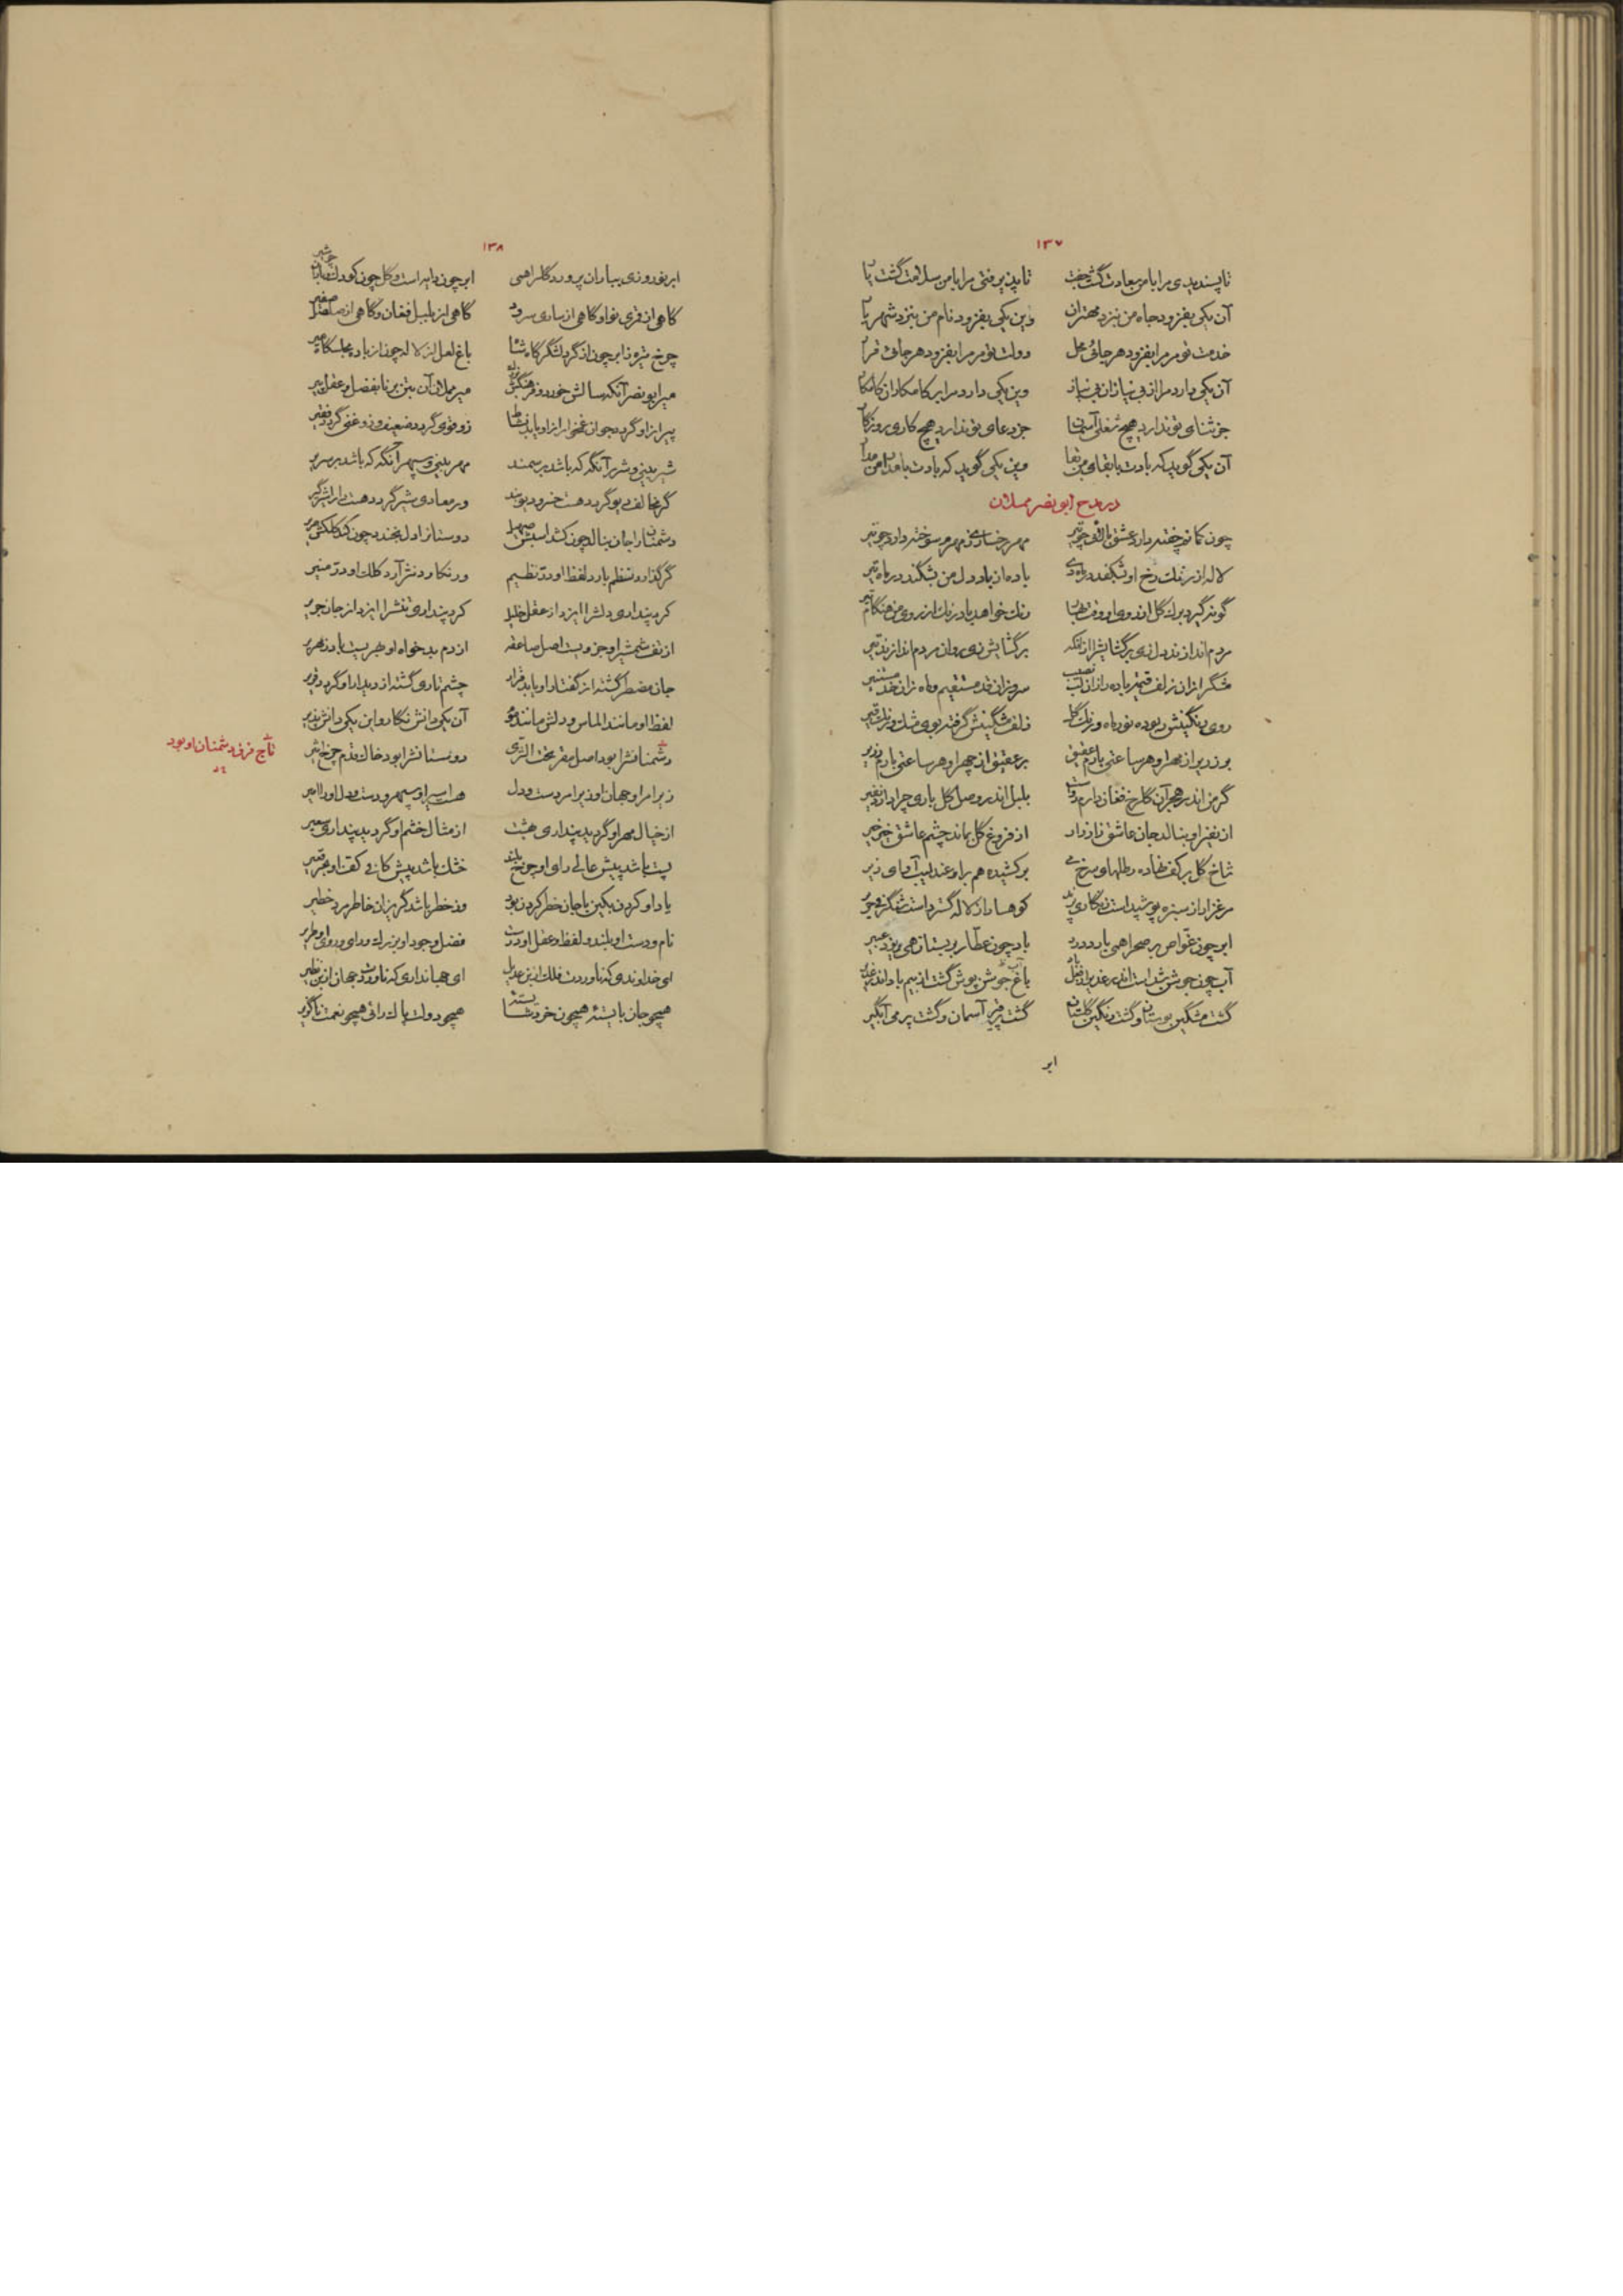 ۱۳۷
تا پسندیدی مرا با من سعادت گشت جفت تا پذیرفتی مرا با من سلامت گشت یار
آن یکی بفزود جاه من بنزد مهتران وین یکی بفزود نام من بنزد شهریار
خدمت تو مر مرا بفزود هر جائی محل دولت تو مر مرا بفزود هر جائی قرار
آن یکی دارد مرا از بی نیازان بی نیاز وین یکی دارد مرا بر کامکاران کامکار
جز ثنای تو ندارد هیچ شغلی آسمان جز دعای تو ندارد هیچ کاری روزگار
آن یکی گوید که بادت با بقای من بقا وین یکی گوید که بادت با مدار من مدار
در مدح ابو نصر مملان
چون کمانم چفته دارد عشق بالائی چو تیر مهر رخساری مهم سوخته دارد چو تیر
لاله از رشک رخ او نشکفد در ماه دی باده از یاد دل من بشکند در ماه تیر
گونه گیرد برگ گل از روی او وقت بهار رنگ خواهد باد رنگ از روی من هنگام تیر
مردم اندازند دل زی برگشایش از آنکه برگشایش زی روان مردم اندازند تیر
شکر از آن زلف قیمت باده را زان لب نصیب سرو زان قد مستقیم و ماه زان خد مستنیر
روی رنگینش ربوده نور ماه و رنگ گل زلف مشگینش گرفته بوی مشک و رنگ قیر
بر زریر از مهر او هر ساعتی بارم عقیق بر عقیق از چهر او هر ساعتی بارم زریر
گر من اندر هجر آن گلرخ فغان دارم رواست بلبل اندر وصل گل باری چرا دارد نفیر
از نفیر او بنالد جان عاشق زار زار از فروغ گل بماند چشم عاشق خیر خیر
شاخ گل بر کف نهاده رطلهای سرخ می برکشیده هم برو عندلیب آوای زیر
مرغزار از سبزه پوشیده است زنگاری پرند کوهسار از لاله گسترد است شنگرفی حریر
ابر چون غواص بر صحرا همی بارد درر باد چون عطار بر بستان همی ریزد عبیر
آب چون جوشن شد است اندر غدیر از فعل باد باغ جوشن پوش گشت از بیم باد اندر غدیر
گشت مشکین بوستان و گشت رنگین گلستان گشت پر قیر آسمان و گشت پر می آبگیر
ابر
۱۳۸
ابر نوروزی بباران پرورد گلرا همی ابر چون دایه است و گل چون کودک و باران چو شیر
گاهی از قمری نوا و گاهی از ساری سرود گاهی از بلبل فغان و گاهی از صلصل صفیر
چرخ تیره ز ابر چون از گرد لشگرگاه شاه باغ لعل از لاله چون از باده مجلسگاه میر
میر ابو نصر آنکه سالش خورد و فرهنگش بزرگ میر مملان آن بتن برنا بفضل و عقل پیر
پیر از او گردد جوان غمخوار از او یابد نشاط زو قوی گردد ضعیف و زو غنی گردد فقیر
شیر بینی و شرر آنگه که باشد بر سمند مهر بینی و سپهر آنگه که باشد بر سریر
گر مخالف دیو گردد هست خسرو دیوبند ور معادی شیر گردد هست دارا شیر گیر
دشمنان را جان بنالد چون کشد اسبش صهیل دوستانرا دل بخندد چون کند کلکش صریر
گر گذارد نظم بارد لفظ او در نظیم ور نگارد نثر آرد کلک او در منیر
کرد پنداری دلش را ایزد از عقل خلیل کرد پنداری تنش را ایزد از جان جریر
از تف شمشیر او جزویست اصل صاعقه از دم بدخواه او هر بیست باد زمهریر
جان مضطر گشته از گفتار او یابد قرار چشم تاری گشته از دیدار او گردد قریر
لفظ او مانند الماس و دلش مانند موم آن یکی دانش نگار و این یکی دانش پذیر
دشمنانش را بود اصل مقر تحت الثری دوستانش را بود خاک قدم چرخ اثیر
تاج فرق دشمنان او بود
زیر امر او جهان او زیر امر دست و دل همسر او سپهر و دست و دل او را امیر
از خیال مهر او گردید پنداری بهشت از مثال خشم او گردید پنداری سعیر
پست باشد پیش عالی رای او چرخ بلند خشک باشد پیش کافی کف او بحر قعیر
یاد او کردن بکین با جان خطر کردن بود وز خطر باشد گریزان خاطر مرد خطیر
نام و دست او بلند و لفظ و عقل او درست فضل و جود او بزرگ و رای و روی او طریر
ای خداوندی که ناورد فلک از تو عدیل ای جهانداری که ناورد جهان از تو نظیر
همچو جان بایسته همچون خرد شایسته همچو دولت پاک رائی همچو نعمت ناگزیر